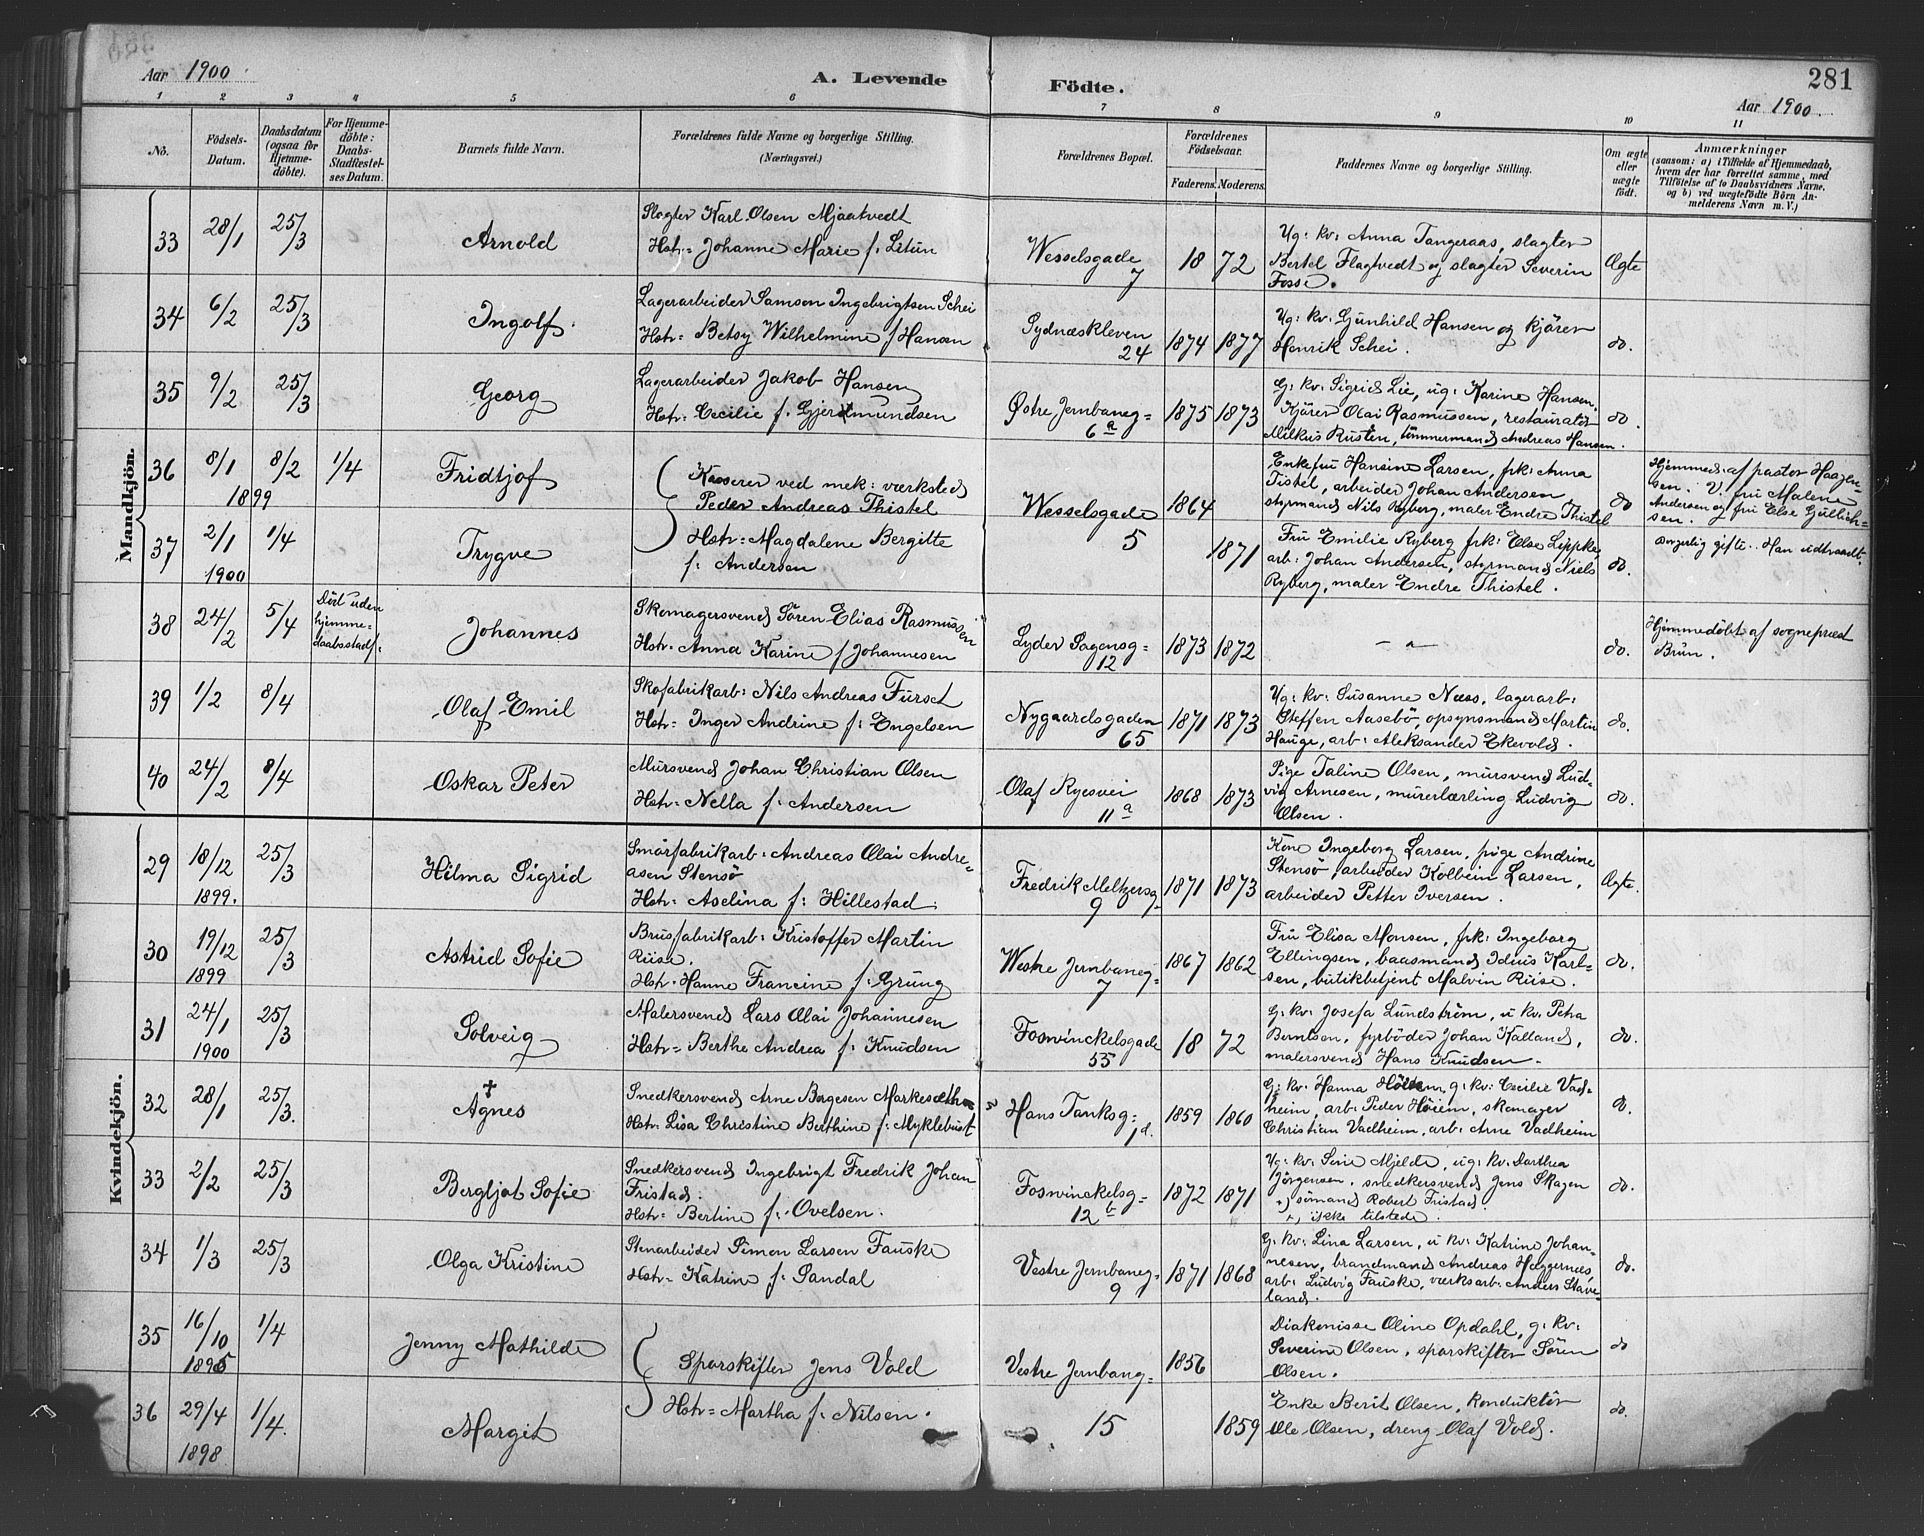 Aar 1900.
A. Levende
Födte.
281
Aar 1900.
1 2 3 4 5 6 7 8 9 10 11
No.
Födsels-Datum.
Daabsdatum (ogsaa for Hjemme-döbte).
For Hjemme-döbte: Daabs-Stadfæstel-ses Datum.
Barnets fulde Navn.
Forældrenes fulde Navne og borgerlige Stilling. (Næringsvei.)
Forældrenes Bopæl.
Forældrenes Födselsaar.
Faderens. Moderens.
Faddernes Navne og borgerlige Stilling.
Om ægte eller uægte födt.
Anmærkninger
(saasom: a) i Tilfælde af Hjemmedaab, hvem der har forrettet samme, med Tilföielse af to Daabsvidners Navne, og b) ved uægtefödte Börn An-melderens Navn m. V.)
Mandkjön.
33 28/1 25/3 Arnold
Slagter Karl Olsen Mjaatvedt
Hstr: Johanne Marie f: Litun
Wesselsgade 7
18 72
Ug: kv: Anna Tangeraas, slagter
Bertel Flagtvedt og slagter Severin
Fosse.
Ægte
34 6/2 25/3 Ingolf.
Lagerarbeider Samson Ingebrigtsen Schei
Hstr: Betsy Wilhelmine f Hansen
Sydnæskleven 24
1874 1877
Ug: kv: Gunhild Hansen og kjörer
Henrik Schei.
do.
35 9/2 25/3 Georg
Lagerarbeider Jakob Hansen
Hstr: Cecilie f. Gjertmundsen
Østre Jernbaneg= 6a
1875 1873
G: kv: Sigrid Lie, ug: Karine Hansen,
Kjörer Olai Rasmussen, restauratör
Milkus Rusten, tömmermand Andreas Hansen.
do.
36 8/1 1899 8/2 1/4 Fridtjof
Kasserer ved mek: værksted
Peder Andreas Thistel
Wesselsgade 5
1864
Enkefru Hansine Larsen, frk: Anna
Tistel, arbeider Johan Andersen
styrmand Nils Ryberg, maler Endre Thistel
do
Hjemmed: af pastor Haagen-
sen. V. fru Malene
Andersen og fru Else Gullich-
sen.
37 2/1 1900 1/4 Trygve
Hstr: Magdalene Bergitte
f: Andersen
1871
Fru Emilie Ryberg frk: Else Lippke
arb: Johan Andersen, styrmand Niels
Ryberg, maler Endre Thistel.
do.
Borgerlig gifte. Han udtraadt.
38 24/2 5/4 Död uden
hjemme-
daabsstadf:
Johannes
Skomagersvend Sören Elias Rasmussen
Hstr. Anna Karine f Johannesen
Lyder Sagensg= 12
1873 1872
do.
Hjemmedöbt af sognepræst
Brun.
39 1/2 8/4 Olaf Emil
Skofabrikarb: Nils Andreas Furset
Hstr: Inger Andrine f: Engelsen
Nygaardsgaden 65
1871 1873
Ug: kv: Susanne Næss, lagerarb:
Steffen Aasebö, opsynsmand Martin
Hauge, arb: Aleksander Ekevold.
do.
40 24/2 8/4 Oskar Peter
Mursvend Johan Christian Olsen
Hstr: Nella f: Andersen
Olaf Ryesvei 11a
1868 1873
Pige Taline Olsen, mursvend Lud-
vig Arnesen, murerlærling Ludvig
Olsen.
do.
Kvindekjön.
29 18/12 1899. 25/3 Hilma Sigrid
Smörfabrikarb: Andreas Olai Andre-
asen Stensö
Hstr: Aselina f: Hillestad.
Fredrik Meltzersg. 9
1871 1873
Kone Ingeborg Larsen, pige Andrine
Stensö, arbeider Kolbein Larsen,
arbeider Petter Iversen.
Ægte.
30 19/12 1899 25/3 Astrid Sofie
Brusfabrikarb: Kristoffer Martin
Riise.
Hstr: Hanne Francine f: Grung
Westre Jernbaneg= 7
1867 1862
Fru Elisa Monsen, frk: Ingeborg
Ellingsen, baasmand Iduis Karl-
sen, butikbetjent Malvin Riise.
do.
31 24/1 1900 25/3 Solveig
Malersvend Lars Olai Johannesen
Hstr: Berthe Andrea f: Knudsen
Foswinckelsgade 55
18 72
G. kv: Josefa Lundström, u kv: Petra
Berntsen, fyrböder Johan Kalland,
malersvend Hans Knudsen.
do.
32 28/1 25/3. † Agnes
Snedkersvend Arne Børgesen
Hstr: Lisa Christine Berthine f: Myklebust
Hans Tanksg: 1d.
1859 1860
G: kv: Hanna g: kv: Cecilie Vad-
heim, arb: Peder Höiem, skomager
Christian Vadheim, arb: Arne Vadheim
do.
33 2/2 25/3 Bergljot Sofie
Snedkersvend Ingebrigt Fredrik Johan
Fristad.
Hstr: Bertine f: Ovelsen.
Foswinckelsg= 12b
1872 1871
Ug: kv: Serie Mjelde, ug: kv: Dorthea
Jörgensen, snedkersvend Jens Skagen
+) sömand Robert Fristad.
+) ikke tilstede.
do.
34 1/3 25/3 Olga Kristine
Stenarbeider Simon Larsen Fauske
Hstr: Katrine f: Sandal
Vestre Jernbaneg= 9
1871 1868
G: kv: Lina Larsen, u kv: Katrine Johan-
nesen, brandmand Andreas Haggernes,
arb: Ludvig Fauske, værksarb: Anders Stave-
land.
do.
35 16/10 1895 1/4 Jenny Mathilde
Sporskifter Jens Vold
Vestre Jernbaneg= 15
1856
Diakonisse Oline Opdahl, g: kv:
Severine Olsen, sporskifter Sören
Olsen.
do
36 29/4 1898 1/4. Margit
Hstr: Martha f: Nilsen.
1859
Enke Berit Olsen, konduktör
Ole Olsen, dreng Olaf Vold.
do.